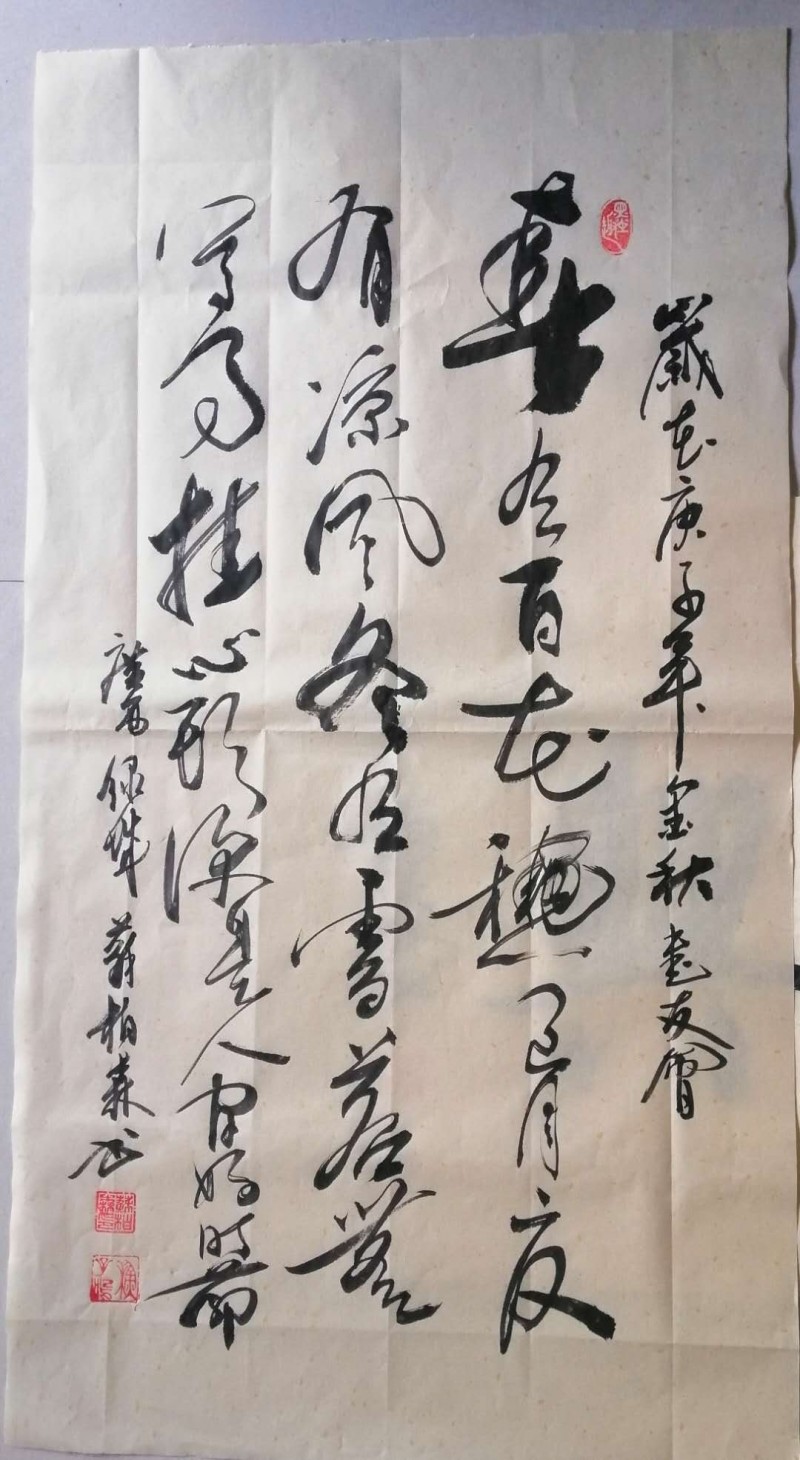 歲在庚子年金秋書友會
春有百花穐有月夏
有凉風冬有雪若無
閑事挂心頭便是人間好時節
廣西绿城蘇柏森书